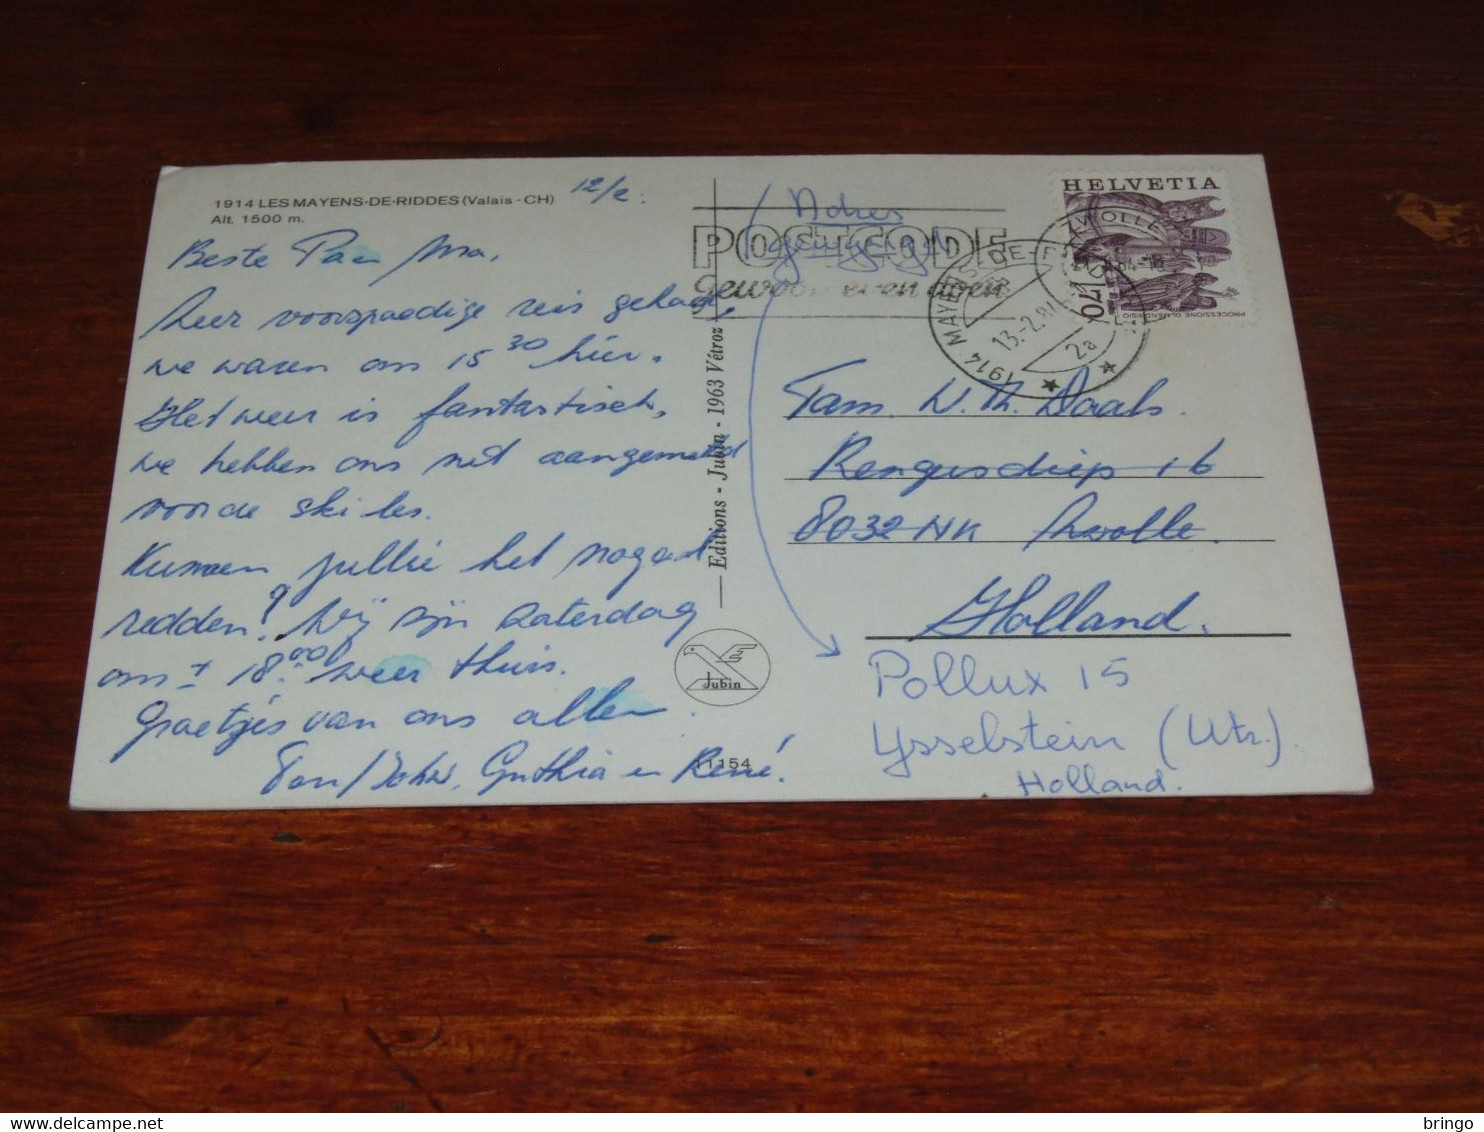 1914 LES MAYENS-DE-RIDDES (Valais - CH)
Alt. 1500 m.
12/2.
Beste Pa en Ma,
Zeer voorspoedige reis gehad,
we waren om 15 30 hier.
Het weer is fantastisch,
we hebben ons net aangemeld
voor de ski les.
Kunnen jullie het nogal
redden? Wij zijn zaterdag
om ± 18.00 weer thuis.
Groetjes van ons allen.
Ton/John, Cynthia en René.
Editions - Jubin - 1963 Vétroz
Jubin
11154
Adres
gewijzigd
POSTCODE
gewoon even doen
HELVETIA
70
PROCESSIONE DI MENDRISIO
1914 MAYENS-DE-R
13.-2.
2a
ZWOLLE
Fam. W. Th. Daals.
Rengersdiep 16
8032 NK Zwolle.
Holland.
Pollux 15
IJsselstein (Utr.).
Holland.
bringo